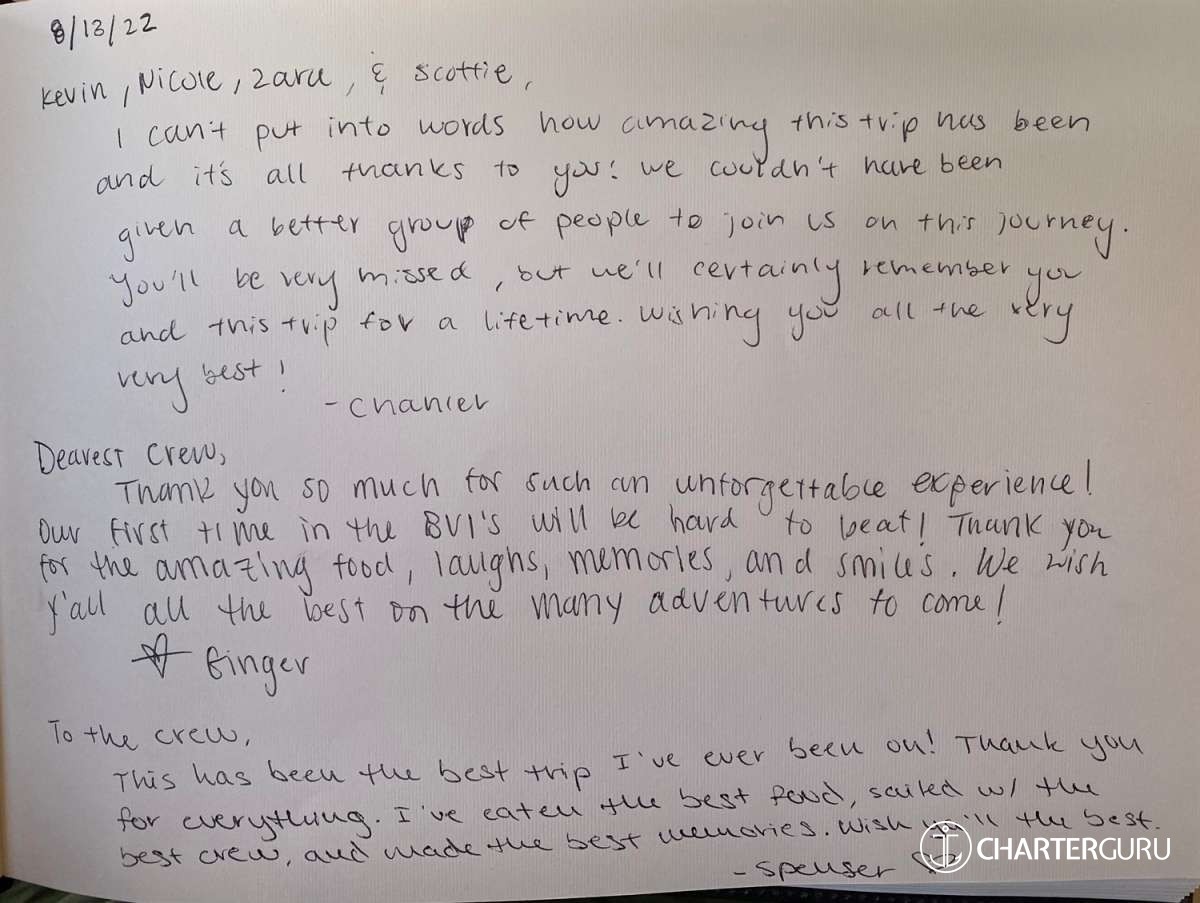 8/13/22
Kevin, Nicole, Zara, & Scottie,
I can't put into words how amazing this trip has been
and it's all thanks to you! We couldn't have been
given a better group of people to join us on this journey.
You'll be very missed, but we'll certainly remember you
and this trip for a lifetime. Wishing you all the very
very best!
- Chancer
Dearest Crew,
Thank you so much for such an unforgettable experience!
Our first time in the BVI's will be hard to beat! Thank you
for the amazing food, laughs, memories, and smiles. We wish
y'all all the best on the many adventures to come!
Ginger
To the crew,
This has been the best trip I've ever been on! Thank you
for everything. I've eaten the best food, sailed w/ the
best crew, and made the best memories. Wish y'all the best.
- Spenser
CHARTERGURU